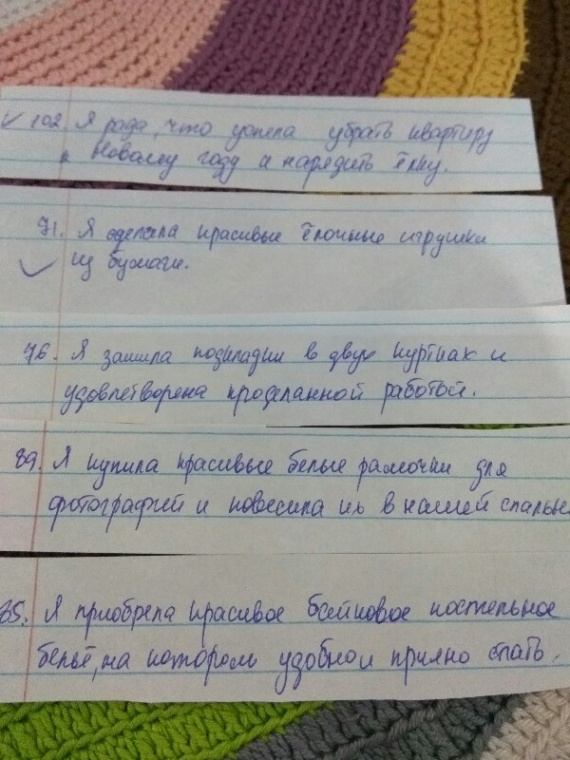 ✓ 102. Я рада, что успела убрать квартиру
к Новому году и нарядить ёлку.
71. Я сделала красивые ёлочные игрушки
✓ из бумаги.
76. Я зашила подкладки в двух куртках и
удовлетворена проделанной работой.
89. Я купила красивые белые рамочки для
фотографий и повесила их в нашей спальне
85. Я приобрела красивое бойковое постельное
бельё, на котором удобно и приятно спать.